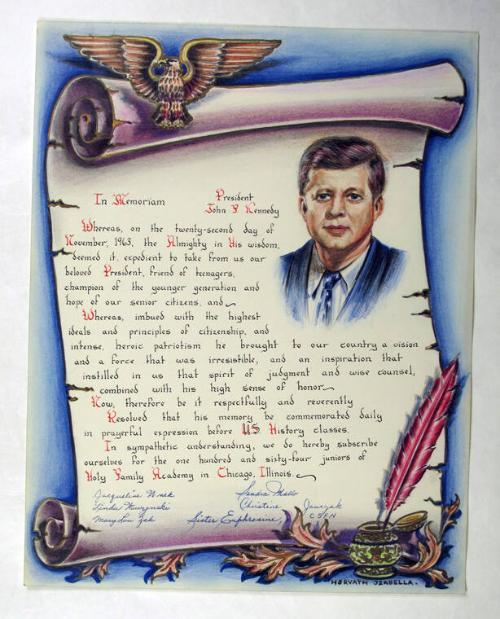 In Memoriam President
John F. Kennedy
Whereas, on the twenty-second day of
November, 1963, the Almighty in His wisdom,
deemed it expedient to take from us our
beloved President, friend of teenagers,
champion of the younger generation and
hope of our senior citizens, and
Whereas, imbued with the highest
ideals and principles of citizenship, and
intense, heroic patriotism he brought to our country a vision
and a force that was irresistible, and an inspiration that
instilled in us that spirit of judgment and wise counsel,
combined with his high sense of honor
Now, therefore be it respectfully and reverently
Resolved that his memory be commemorated daily
in prayerful expression before US History classes.
In sympathetic understanding, we do hereby subscribe
ourselves for the one hundred and sixty-four juniors of
Holy Family Academy in Chicago, Illinois.
Jacqueline Sandra
Linda Christine
Mary Lou Zak Sister Euphrosine
HORVATH IZABELLA.